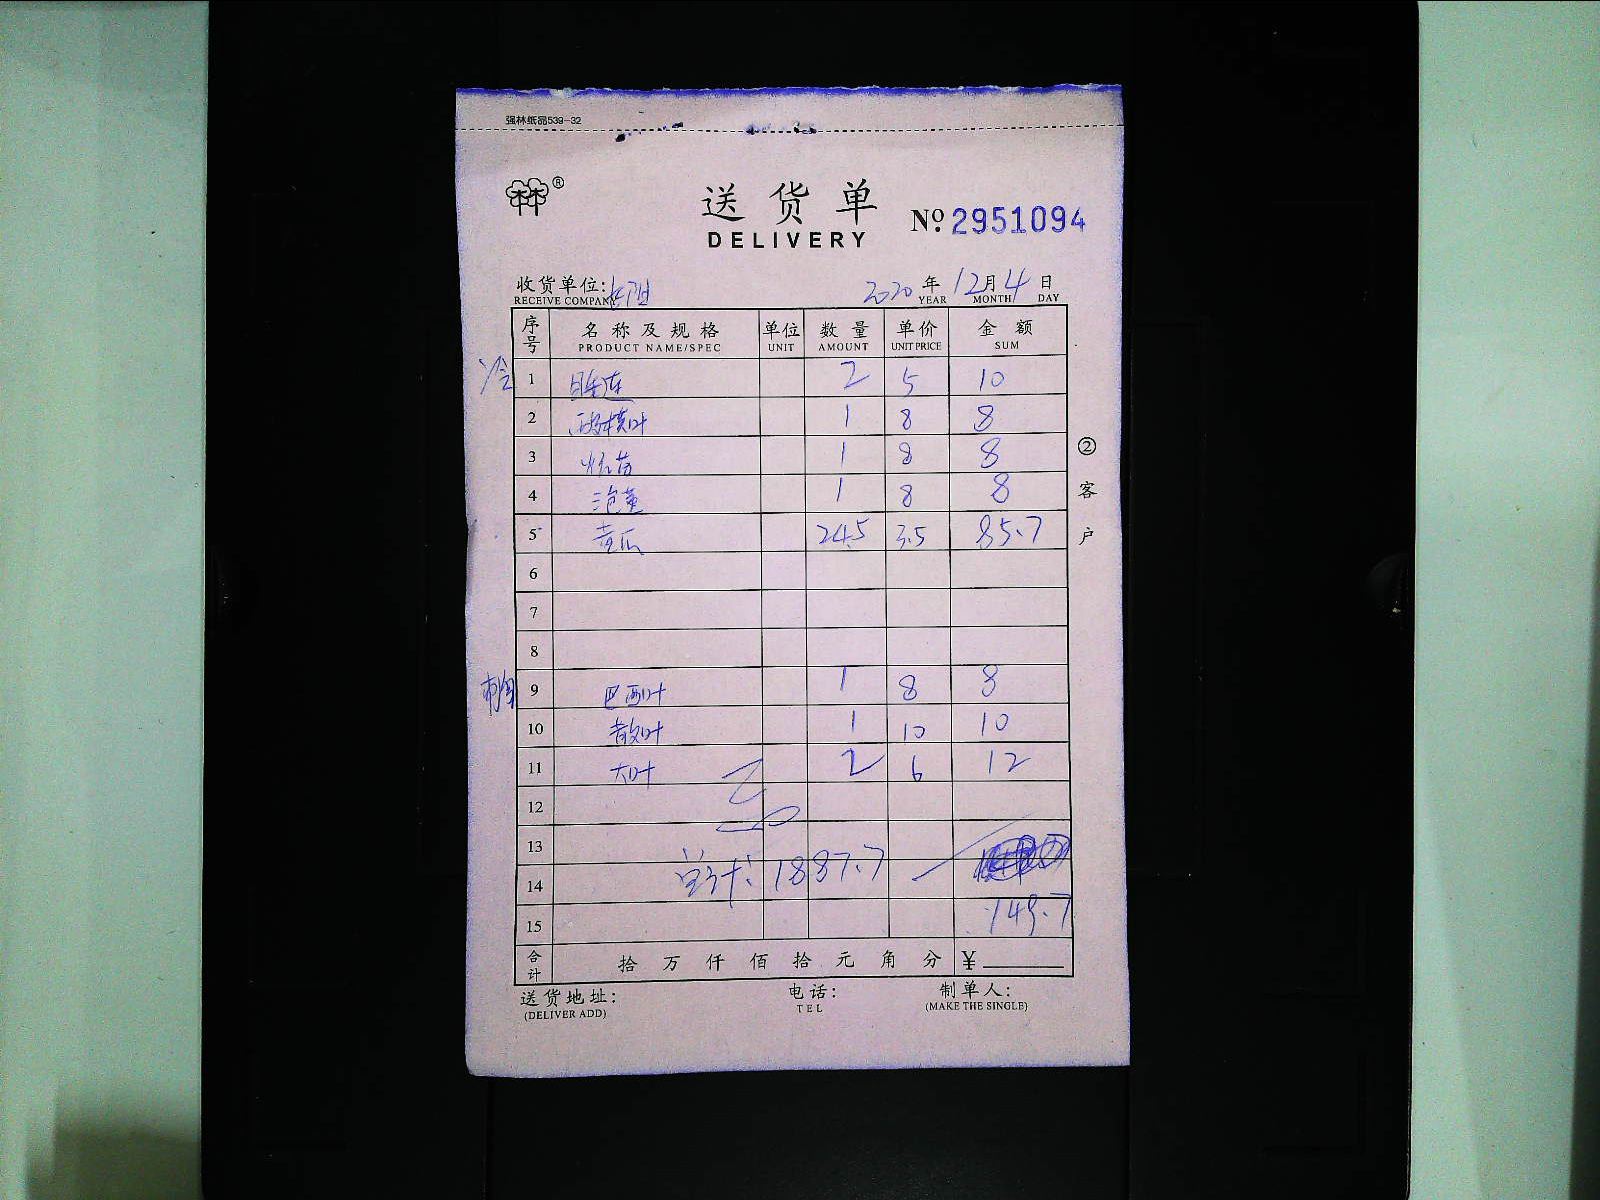 强林纸品539-32
林林®
送货单
DELIVERY
Nº: 2951094
收货单位:
RECEIVE COMPANY
2020年12月4日
YEAR MONTH DAY
序号 名称及规格 单位 数量 单价 金额
PRODUCT NAME/SPEC UNIT AMOUNT UNIT PRICE SUM
冷 1 2 5 10
2 1 8 8
3 1 8 8
4 1 8 8
5 黄瓜 24.5 3.5 85.7
6
7
8
9 巴西叶 1 8 8
10 散叶 1 10 10
11 大叶 2 6 12
12
13
14 1887.7
15 149.7
合计 拾万仟佰拾元角分 ¥
送货地址: 电话: 制单人:
(DELIVER ADD) TEL (MAKE THE SINGLE)
②客户